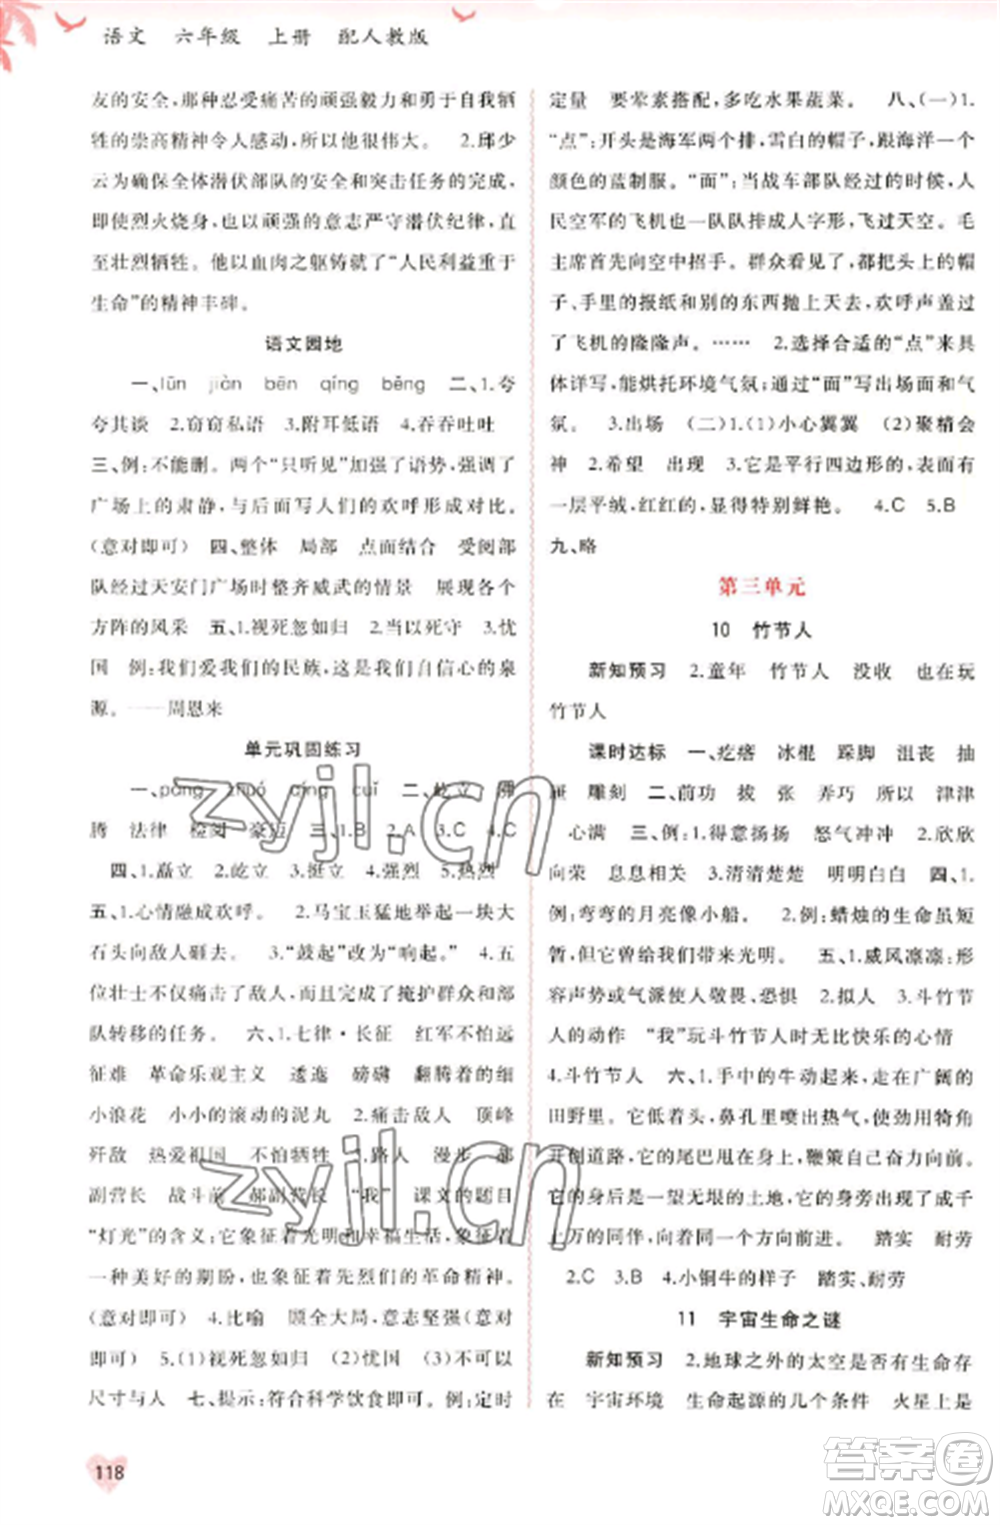 语文 六年级 上册 配人教版
友的安全,那种忍受痛苦的顽强毅力和勇于自我牺
牲的崇高精神令人感动,所以印象深刻。 2.邱少
云为确保全体潜伏部队的安全和突击任务的完成,
即使烈火烧身,也以顽强的意志严守潜伏纪律,直
至壮烈牺牲。他以血肉之躯铸就了“人民利益重于
生命”的精神丰碑。
语文园地
一、lūn jiàn bēn qíng bēng 二、1.夸
夸其谈 2.窃窃私语 3.附耳低语 4.吞吞吐吐
三、例:不能删。两个“只听见”加强了语势,强调了
广场上的肃静,与后面写人们的欢呼形成对比。
(意对即可) 四、整体 局部 点面结合 受阅部
队经过天安门广场时整齐威武的情景 展现了各个
方阵的风采 五、1.视死忽如归 2.当以死守 3.忧
国 例:我们爱我们的民族,这是我们自信心的泉
源。——周恩来
单元巩固练习
一、 二、屹立
腾 法律 检阅 豪迈 三、1.B 2.A 3.C 4.C
四、1.矗立 2.屹立 3.挺立 4.强烈 5.热烈
五、1.心情融成欢呼。 2.马宝玉猛地举起一块大
石头向敌人砸去。 3.“鼓起”改为“响起”。 4.五
位壮士不仅痛击了敌人,还完成了掩护群众和部
队转移的任务。 六、1.七律·长征 红军不怕远
征难 革命乐观主义 逶迤 磅礴 翻腾着的细
小浪花 小小的滚动的泥丸 2.痛击敌人 顶峰
歼敌 热爱祖国 不怕牺牲 3.路人 漫步 郝
副营长 战斗前 郝副营长 “我” 课文的题目
“灯光”的含义:它象征着光明和幸福生活,象征着
一种美好的期盼,也象征着先烈们的革命精神。
(意对即可) 4.比喻 顾全大局,意志坚强(意对
即可) 5.(1)视死忽如归 (2)忧国 (3)不要让
尺寸与人 七、提示:符合科学饮食即可。例:定时
定量 要荤素搭配,多吃水果蔬菜。 八、(一)1.
“点”:开头是海军两个排,雪白的帽子,跟海洋一个
颜色的蓝制服。“面”:当战车部队经过的时候,人
民空军的飞机也一队队排成人字形,飞过天空。毛
主席首先向空中招手。群众看见了,都把头上的帽
子、手里的报纸和别的东西抛上天去,欢呼声盖过
了飞机的隆隆声。…… 2.选择合适的“点”来具
体详写,能烘托环境气氛;通过“面”写出场面和气
氛。 3.出场 (二)1.(1)小心翼翼 (2)聚精会
神 2.希望 出现 3.它是平行四边形的,表面有
一层平绒,红红的,显得特别鲜艳。 4.C 5.B
九、略
第三单元
10 竹节人
新知预习 2.童年 竹节人 没收 也在玩
竹节人
课时达标 一、疙瘩 冰棍 跺脚 沮丧 抽
屉 雕刻 二、前功 拨 张 弄巧 所以 津津
心满 三、例:1.得意扬扬 怒气冲冲 2.欣欣
向荣 息息相关 3.清清楚楚 明明白白 四、1.
例:弯弯的月亮像小船。 2.例:蜡烛的生命虽短
暂,但它却能给我们带来光明。 五、1.威风凛凛:形
容声势或气派使人敬畏、恐惧。 2.拟人 3.斗竹节
人的动作 “我”玩斗竹节人时无比快乐的心情
4.斗竹节人 六、1.手中的牛动起来,走在广阔的
田野里。它低着头,鼻孔里喷出热气,使劲用犄角
开创道路,它的尾巴甩动着,鞭策自己奋力向前。
它的身后是一望无垠的土地,身旁出现了成千
上万的同伴,与它一起并肩前进。 踏实 耐劳
2.C 3.B 4.小铜牛的样子 踏实、耐劳
11 宇宙生命之谜
新知预习 2.地球之外的太空是否有生命存
在 宇宙环境 生命起源的几个条件 火星上是
118
zyjl.cn
答案圈
MXQE.COM